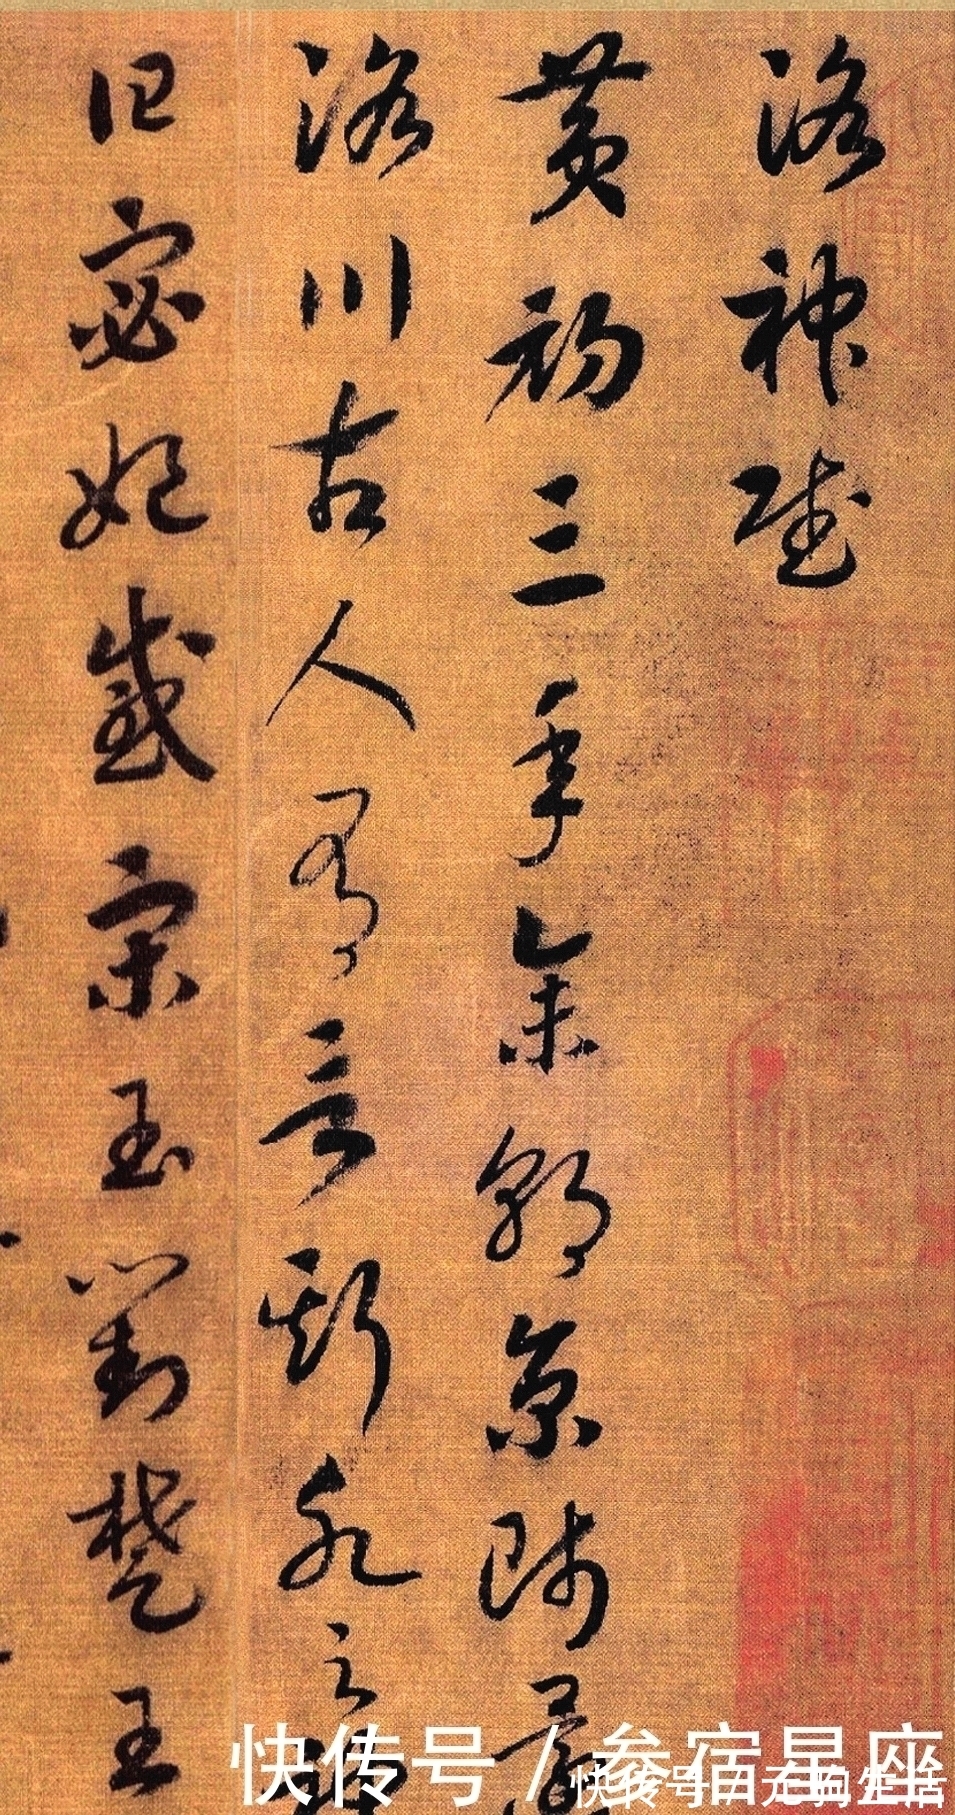 洛神賦
黄初三年余朝京師還
洛川古人有言斯水之神
曰宓妃感宋玉對楚王
快传号 / 参宿星座
快传号 / 元狗生活